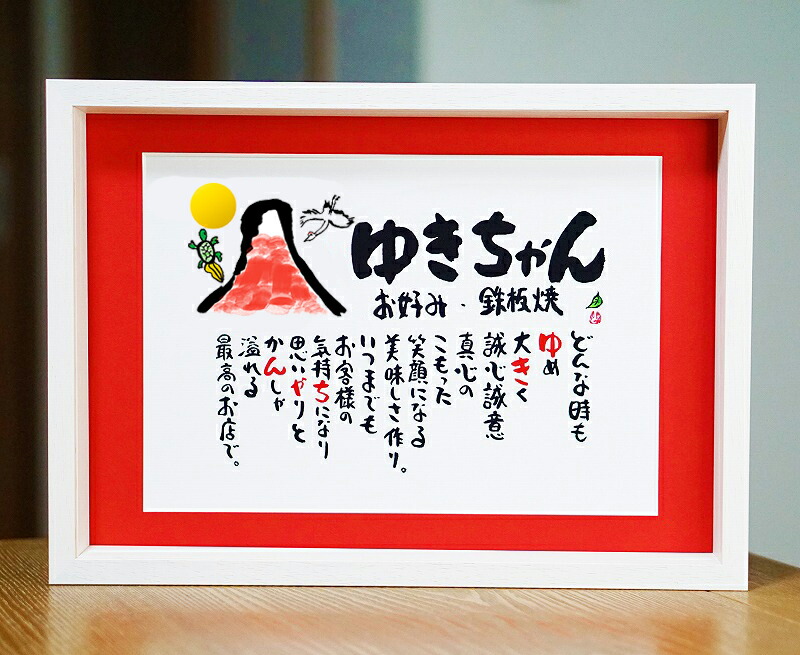 ゆきちゃん
お好み・鉄板焼
どんな時も
ゆめ
大きく
誠心誠意
真心の
こもった
笑顔になる
美味しさ作り。
いつまでも
お客様の
気持ちになり
思いやりと
かんしゃ
溢れる
最高のお店で。